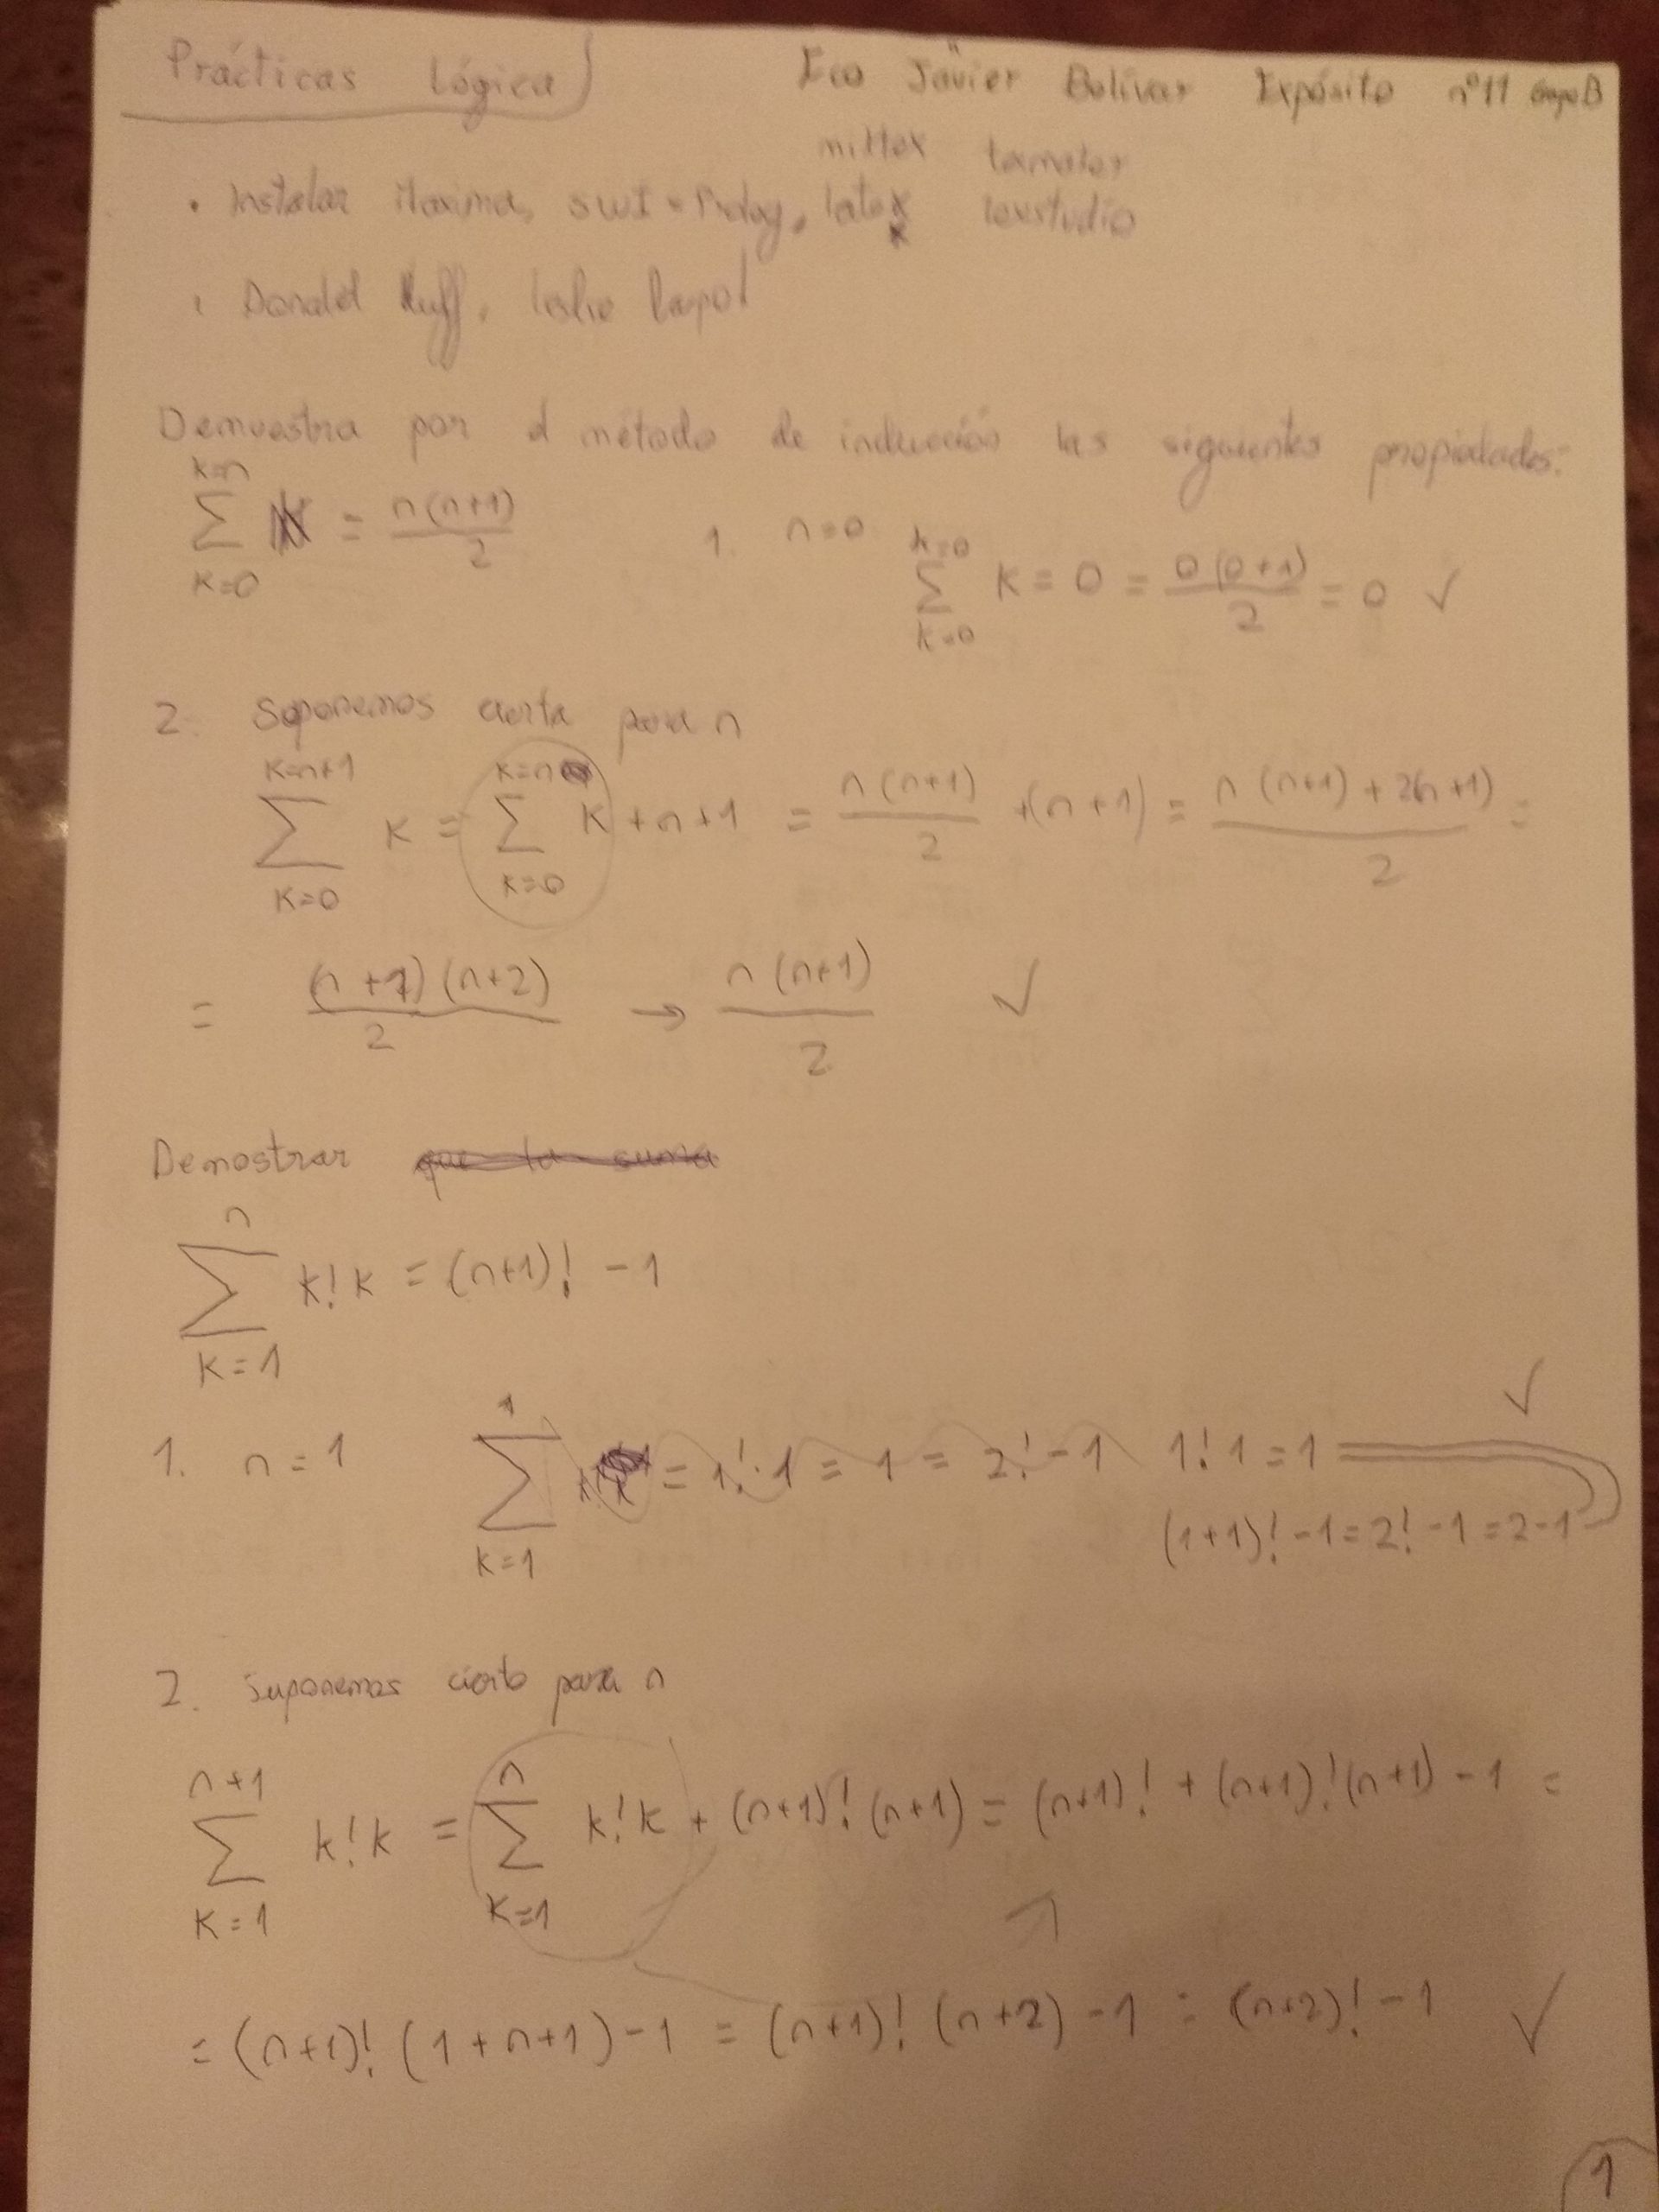 Prácticas Lógica
Fco Javier Bolívar Expósito nº11 Grupo B
miktex
• Instalar Maxima, SWI-Prolog, latex texstudio
• Donald leslie
Demuestra por el método de inducción las siguientes propiedades:
∑_{k=0}^{k=n} k = n(n+1)/2
1. n=0 ∑_{k=0}^{k=0} k = 0 = 0(0+1)/2 = 0 ✓
2. Suponemos cierta para n
∑_{k=0}^{k=n+1} k = ∑_{k=0}^{k=n} k + n+1 = n(n+1)/2 + (n+1) = (n(n+1) + 2(n+1))/2 =
= (n+1)(n+2)/2 → n(n+1)/2 ✓
Demostrar que la suma
∑_{k=1}^{n} k! k = (n+1)! - 1
1. n = 1 ∑_{k=1}^{1} = 1!·1 = 1 = 2! - 1 1! 1 = 1 ✓
(1+1)! - 1 = 2! - 1 = 2 - 1
2. Suponemos cierto para n
∑_{k=1}^{n+1} k! k = ∑_{k=1}^{n} k! k + (n+1)! (n+1) = (n+1)! + (n+1)! (n+1) - 1 =
= (n+1)! (1 + n+1) - 1 = (n+1)! (n+2) - 1 = (n+2)! - 1 ✓
1